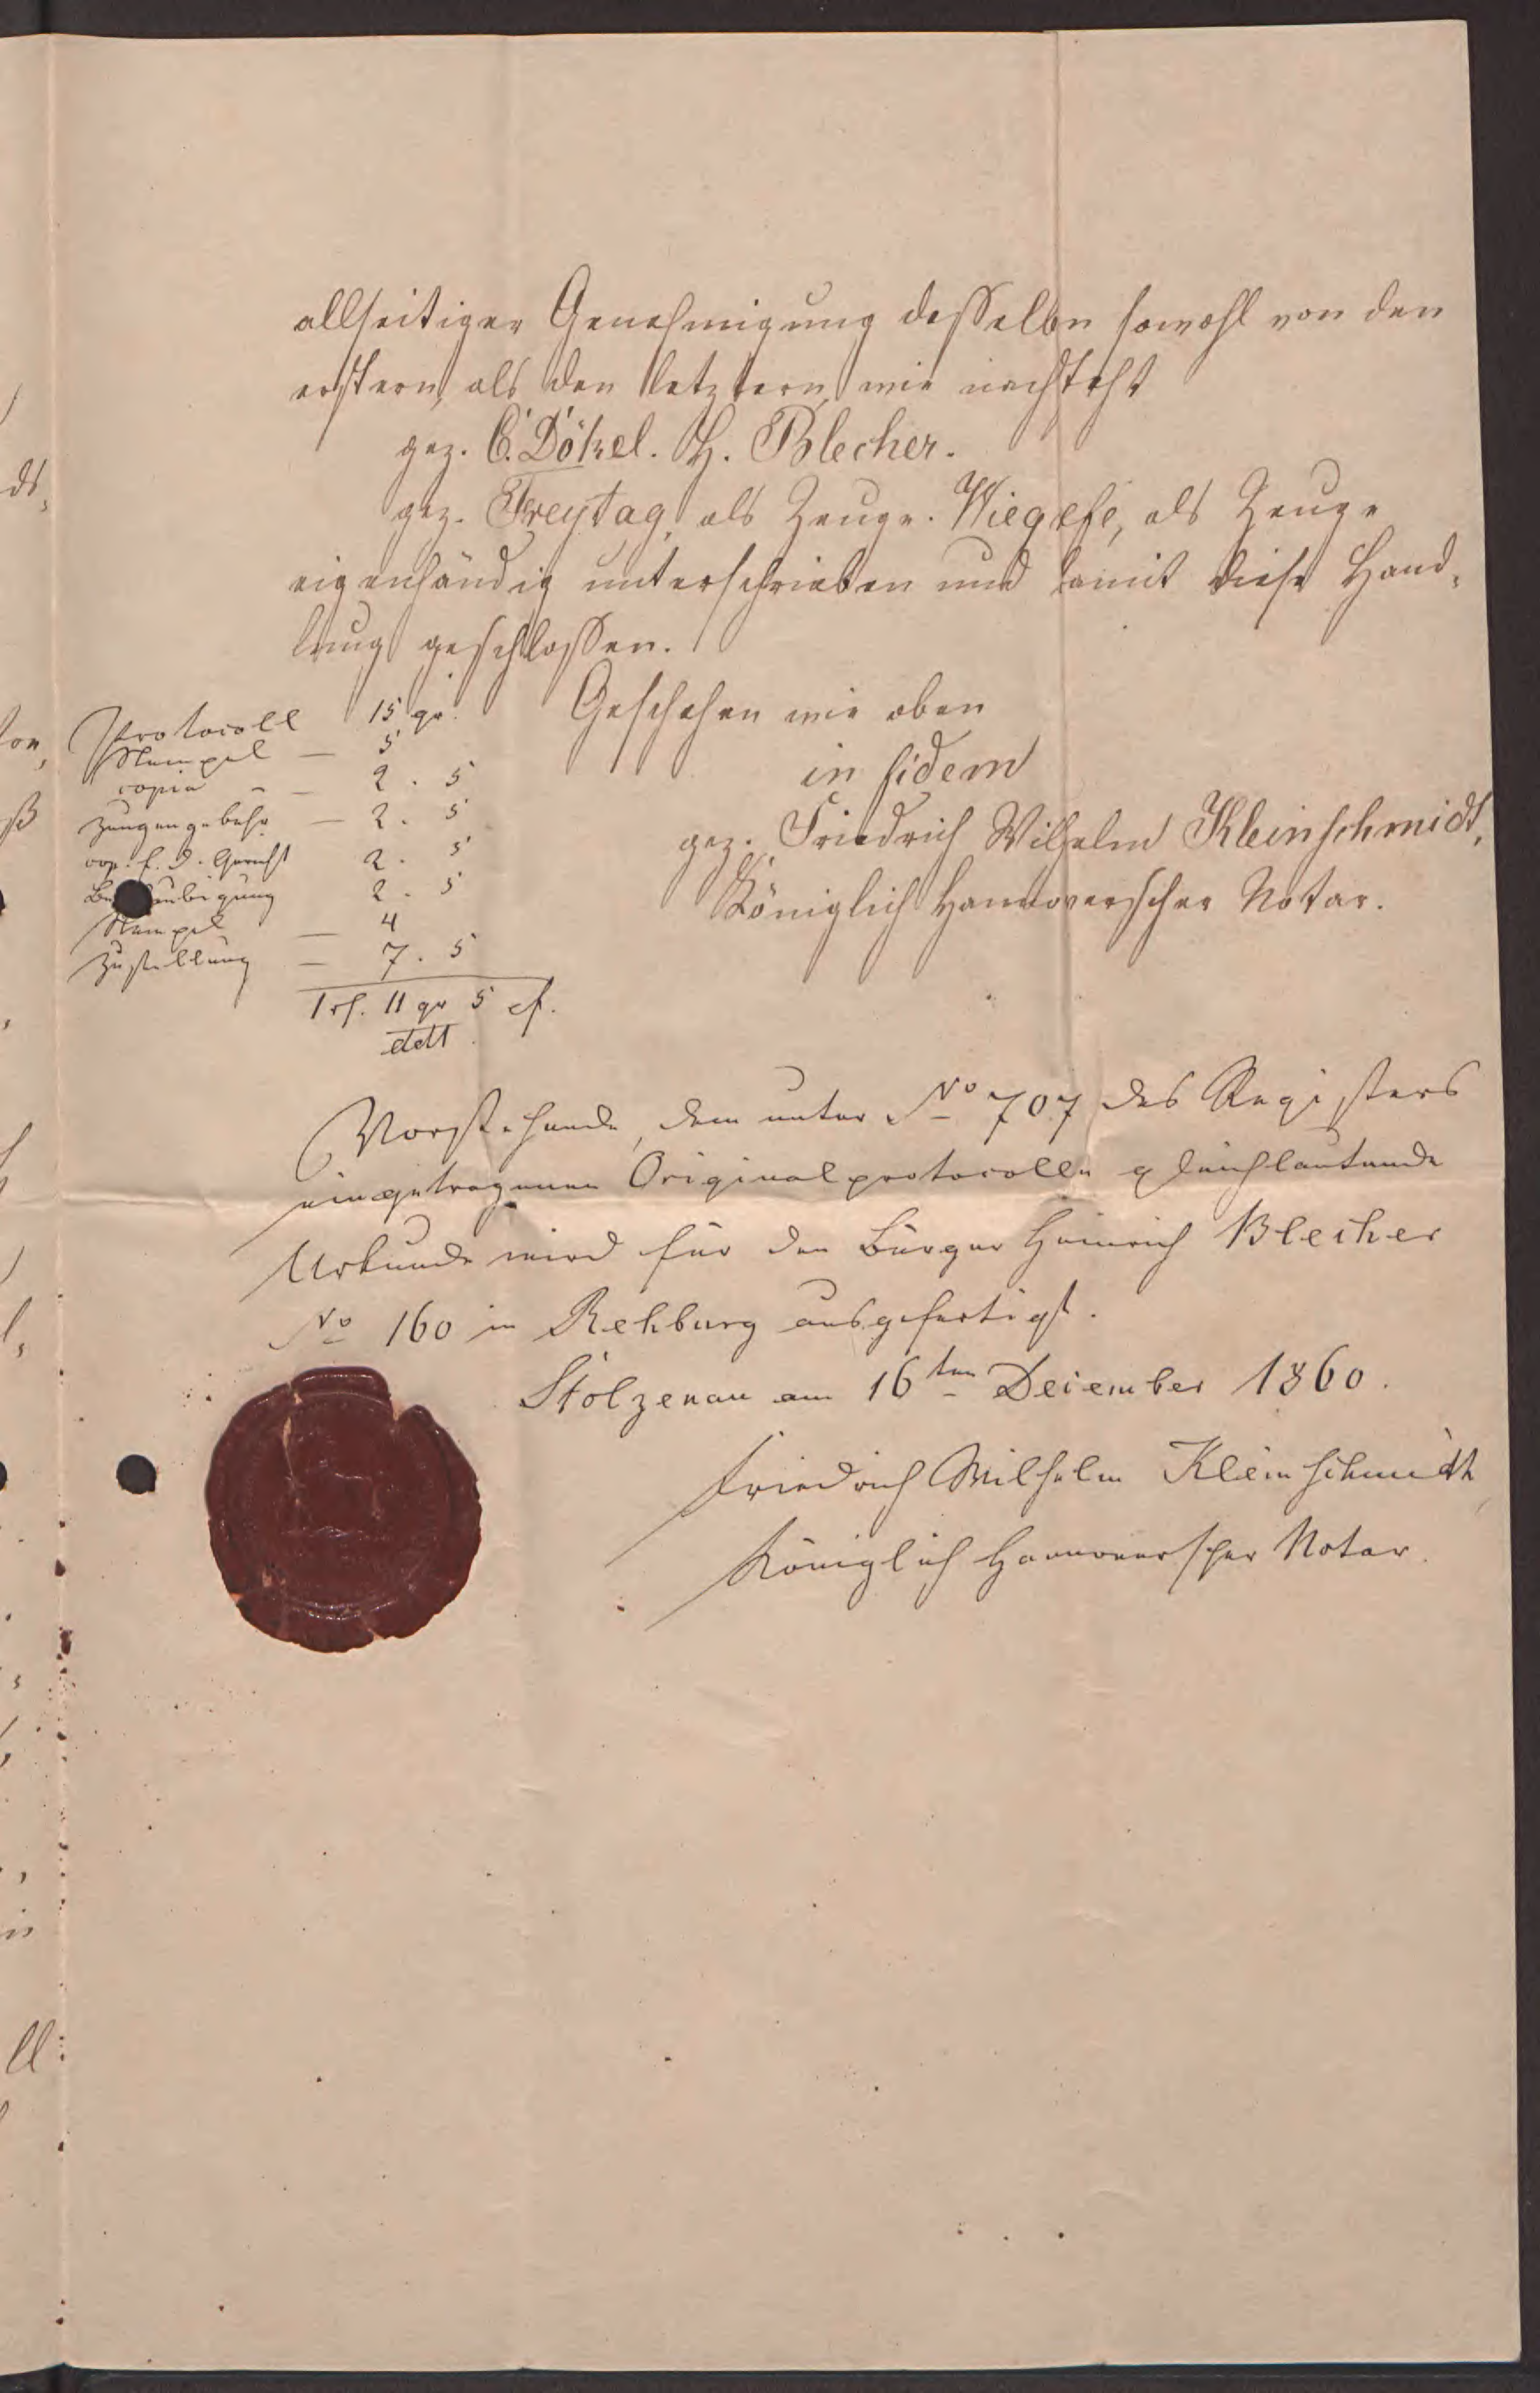 allseitiger Genehmigung desselben sowohl von den
erstern, als den letztern, wie nachsteht
gez. C. Dökel. H. Blecher.
gez. Freytag, als Zeuge. Wiegese, als Zeuge
eigenhändig unterschrieben und damit diese Hand-
lung geschlossen.
Geschehen wie oben
in fidem
gez. Friedrich Wilhelm Kleinschmidt,
Königlich Hannoverscher Notar.
Protocoll 15 gr.
Stempel — 5
copia - — 2 . 5
Zeugengebühr — 2 . 5
cop. f. d. Gericht 2 . 5
Beglaubigung 2 . 5
Stempel — 4
Zustellung — 7 . 5
1 rf. 11 gr 5
Vorstehende, dem unter No 707 des Registers
eingetragenen Originalprotocolle gleichlautende
Urkunde wird für den Bürger Heinrich Blecher
No 160 in Rehburg ausgefertigt.
Stolzenau am 16ten December 1860.
Friedrich Wilhelm Kleinschmidt,
Königlich Hannoverscher Notar.